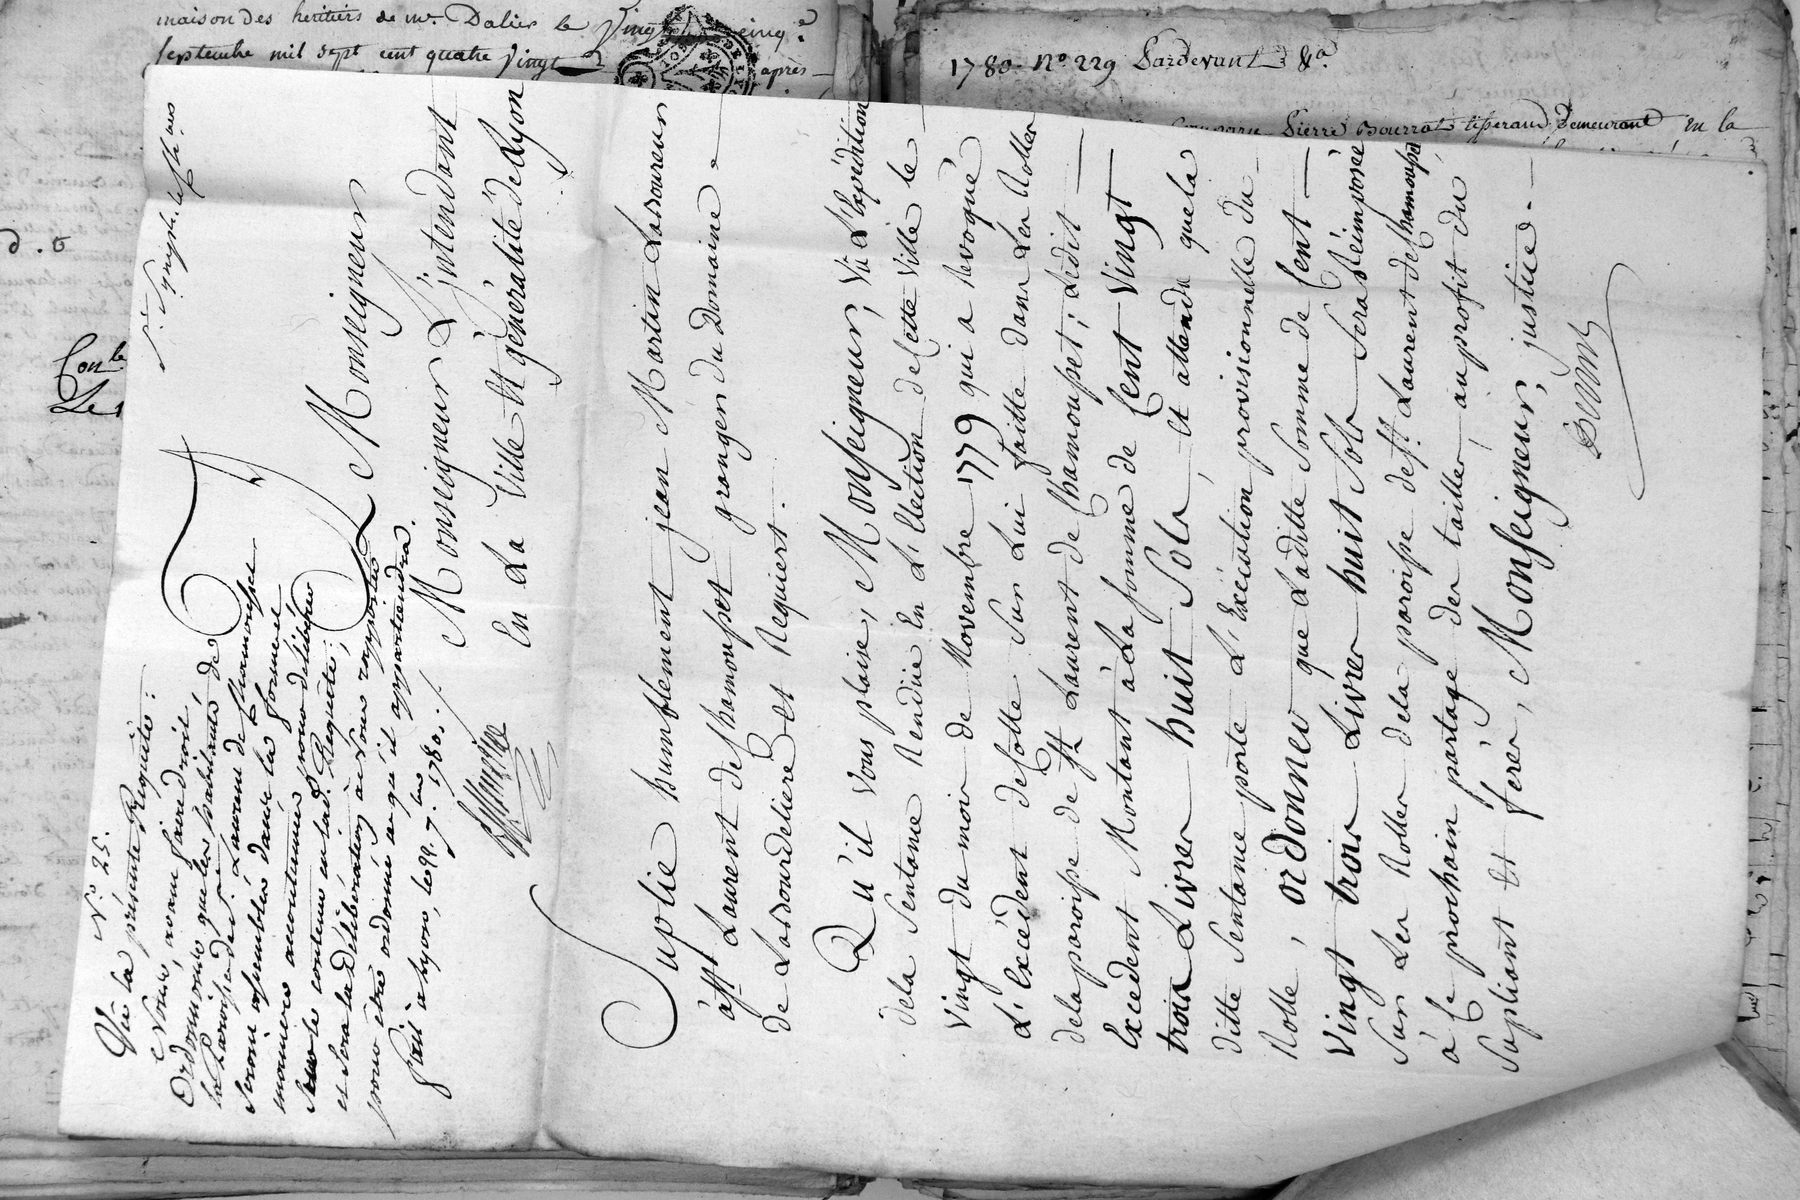 maison des heritiers de mr. Dalier le Vingt cinq.e
septembre mil sept cent quatre Vingt
après
1780 N.o 229 Pardevant &a.
Pierre Bourrat tisserand demeurant en la
d. o
Con.le
Le
N.o 25.
Vu la présente Requête:
Nous, avant faire droit,
Ordonnons que les habitants de
la Paroisse de S.t Laurent de Chamousset
seront assemblés dans la forme et
maniere accoutumée pour délibérer
sur le contenu en lad. Requête;
et sera la Délibération à Nous rapportée
pour être ordonné ce qu'il appartiendra.
Fait à Lyon, le 7.bre 1780.
A Monseigneur
Monseigneur L'jntendant
En La Ville Et généralité de Lyon
Suplie humblement jean Martin Laboureur
à st Laurent de Chamousset granger du Domaine
de La Bourdeliere et Requiert.
Qu'il vous plaise, Monseigneur, Vû L'Expédition
dela Sentance Rendüe En L'Election de Cette Ville le
vingt du mois de Novembre 1779 qui a Revoqué
L'Excédent de Cotte Sur Lui faitte dans Les Rolles
dela paroisse de st Laurent de Chamousset; Ledit
Excedent Montant à La somme de Cent Vingt
trois Livres huit Sols, et attendu que la
ditte Sentance porte L'Exécution provisionnelle du
Rolle, ordonner que Laditte Somme de Cent
Vingt trois Livres huit Sols Sera Réimposée
Sur Les Rolles dela paroisse de st Laurent de Chamousset
à Ce prochain partage des tailles, au profit du
Supliant Et ferés, Monseigneur, justice.